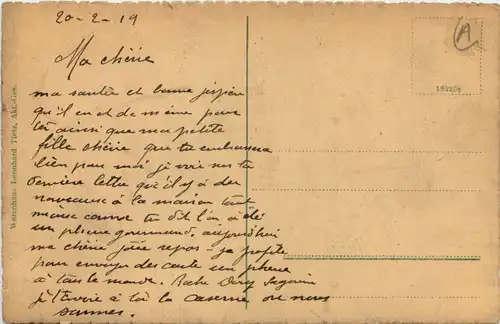 20-2-19
Ma chérie
ma santée et bonne j'espère
qu'il en et de même pour
toi ainsi que ma petite
fille chérie que tu embrassera
bien pour moi je vois sur ta
dernière lettre qu'il y a du
nouveaux à la maison tant
mieux comme tu dit l'on a été
un plus gourmand. aujourd'hui
ma chérie jour repos je profite
pour envoyer des carte un
à tous le monde.
je t'envoie à toi la caserne ou nous
sommes.
Warenhaus Leonhard Tietz, Akt.-Ges.
A